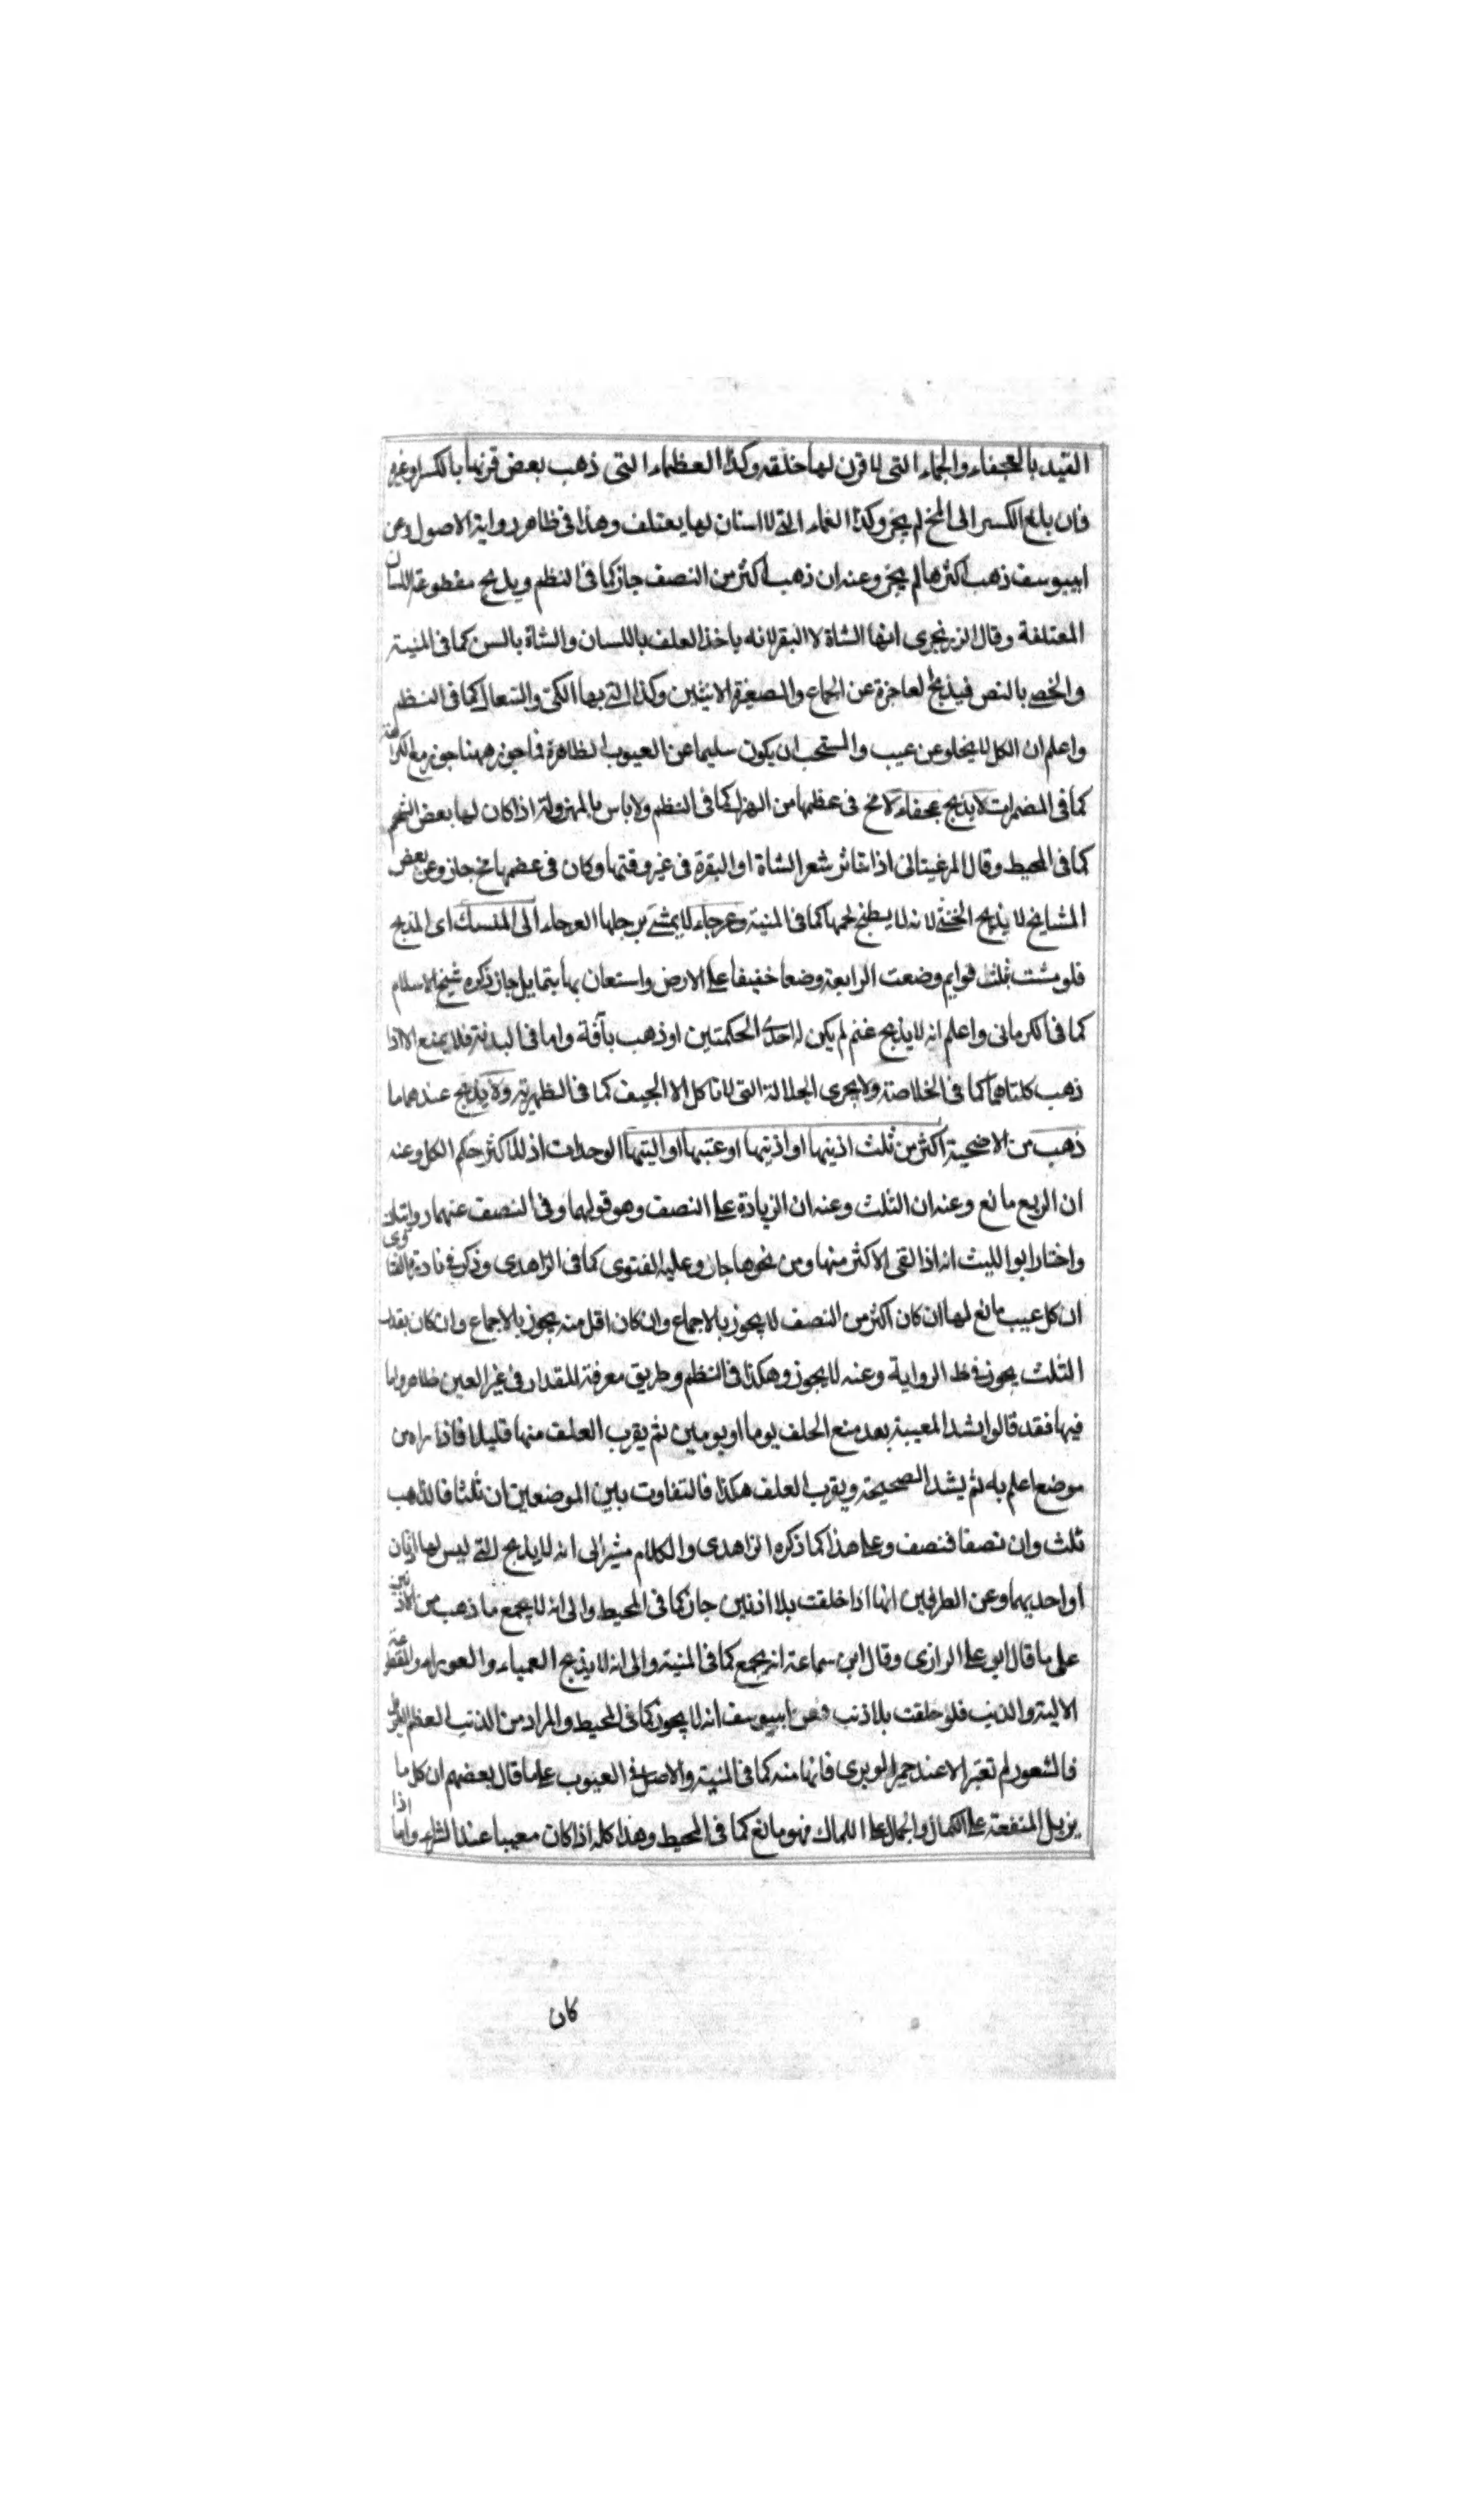 القيد بالعجفاء والجماء التى لا قرن لها خلقه وكذا العظماء التى ذهب بعض قرنها بالكسر وغيره
فان بلغ الكسر الى المخ لم يجز وكذا الغماء التى لا اسنان لها يعتلف وهذا فى ظاهر رواية الاصول وعن
ابييوسف ذهب اكثرها لم يجز وعنه ان ذهب اكثر من النصف جاز كما فى النظم ويذبح مقطوعة اللسان
المعتلفة وقال الزرنجرى انها الشاة لا البقر لانه ياخذ العلف باللسان والشاة بالسن كما فى المنية
والخصى بالنص فيذبح لعاجزة عن الجماع والصغيرة الانثيين وكذا التى بها الكى والسعال كما فى النظم
واعلم ان الكل لا يخلو عن عيب والمستحب ان يكون سليما عن العيوب الظاهرة فما جوز ههنا جوز مع الكراهة
كما فى المضمرات لا يذبح عجفاء لا مخ فى عظمها من الهزال كما فى النظم ولا باس بالمهزولة اذا كان لها بعض الشحم
كما فى المحيط وقال المرغينانى اذا تناثر شعر الشاة او البقرة فى غير وقتها وكان فى عضمها مخ جاز وعن بعض
المشايخ لا يذبح الخنثى لانه لا يطبخ لحمها كما فى المنية وعرجاء لا يمشى برجلها العرجاء الى المنسك اى المذبح
فلو مشت بثلث قوايم وضعت الرابعة وضعا خفيفا على الارض واستعان بها بتمايل جاز ذكره شيخ الاسلام
كما فى الكرمانى واعلم انه لا يذبح غنم لم يكن له احدى الحكمتين او ذهب بآفة واما فى البدنة فلا يمنع الا اذا
ذهب كلتاهما كما فى الخلاصة ولا يجرى الجلالة التى لا تاكل الا الجيف كما فى الظهيرية ولا يذبح عندهما ما
ذهب من الاضحية اكثر من ثلث اذنيها او اذنيها او عينها او اليتها الوحدات اذ للاكثر حكم الكل وعنه
ان الربع مانع وعنه ان الثلث وعنه ان الزيادة على النصف وهو قولهما وفى النصف عنهما روايتان
واختار ابو الليث انه اذا القى الاكثر منها ومن نحوها جاز وعليه الفتوى كما فى الزاهدى وذكر فى نادرة الفتاوى
ان كل عيب مانع لها ان كان اكثر من النصف لا يجوز بالاجماع وان كان اقل منه يجوز بالاجماع وان كان بقدر
الثلث يجوز فى ظ الرواية وعنه لا يجوز وهكذا فى النظم وطريق معرفة المقدار فى غير العين ظاهر واما
فيها فقد قالوا يشد المعيبة بعد منع الحلف يوما او يومين ثم يقرب العلف منها قليلا فاذا راه من
موضع اعلم به ثم يشد الصحيحة ويقرب العلف هكذا فالتفاوت بين الموضعين ان ثلثا فالذاهب
ثلث وان نصفا فنصف وعلى هذا كما ذكره الزاهدى والكلام مشير الى انه لا يذبح التى ليس لها اذنان
او احديهما وعن الطرفين انها اذا خلقت بلا اذنين جاز كما فى المحيط والى انه لا يجمع ما ذهب من الاذنين
على ما قال ابو على الرازى وقال ابن سماعة انه يجمع كما فى المنية والى انه لا يذبح العمياء والعوراء والمقطوعة
الالية والذنب فلو خلقت بلا ذنب فعن ابييوسف انه لا يجوز كما فى المحيط والمراد من الذنب العظم
فالشعور لم تعتبر الا عند حمير الوبرى فانها منه كما فى المنية والاصل فى العيوب على ما قال بعضهم ان كل ما
يزيل المنفعة على الكمال والجمال على الكمال فهو مانع كما فى المحيط وهذا كله اذا كان معيبا عند الشراء واما اذا
كان